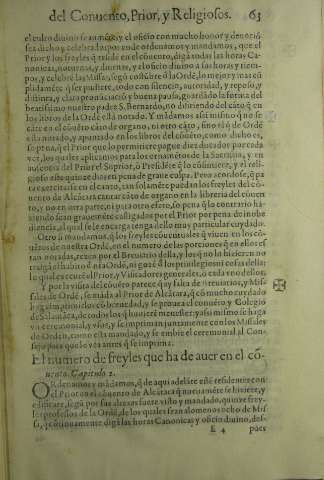 del Conuento, Prior, y Religiosos. 63
el culto diuino se aumēte, y el oficio con mucho honor y deuoció
sea dicho y celebrado: por ende ordenamos y mādamos, que el
Prior y los freyles q̄ residē en el cōuento, digā todas las horas Ca-
nonicas, nocturnas, y diurnas, y el oficio diuino a sus horas y tiem-
pos, y celebrē las Missas, segū costūbre d̄ la Ordē, lo mejor y mas cū
plidamēte q̄ ser pudiere, todo con silencio, autoridad, y reposo, y
distinta, y clara pronūciació y buena pausa, guardādo la forma del
beatissimo nuestro padre S. Bernardo, no distiendo del cāto q̄ en
los libros de la Ordē està notado. Y mādamos assi mismo q̄ no se
cāte en el cōuēto cāto de organo, ni otro cāto, sino el q̄ de Ordē
està notado, y apuntado en los libros del cōuēto, como dicho es,
so pena, q̄ el Prior que lo permitiere pague diez ducados por cada
vez, los quales aplicamos para los ornamētos de la Sacristia, y en
ausencia del Prior el Suprior, ò Presidēte
q̄ assi cātare
pena de graue culpa. Pero
se exercitarse en el canto, tan solamēte puedan los freyles del cō-
uento de Alcātara cantar cāto de organo en la libreria del cōuen
to, y no en otra parte, ni para otro efeto, so pena q̄ lo contrario ha-
ziendo sean grauemēte castigados por el Prior por pena de inobe
diencia, al qual se le encarga tenga dello muy particular cuydado.
Otro si mandamos, q̄ los freyles cōuentuales q̄ viuen en los cō-
uētos de nuestra Ordē, en el numero de las porciones q̄ en ellos es
tan notadas, rezen por el Breuiario della, y los q̄ no lo hizieren no
traygā el habito d̄ n̄ra Ordē, ni gozē d̄ los priuilegios
lo qual es
el Prior, y Visitadores generales, o cada vno dellos.
Y por la visita del cōuēto parece q̄ ay falta de Breuiarios, y Mis-
sales de Ordē, se māda al Prior de Alcātara, q̄ cō mucho cuydado
haga
y se
el conuento y Colegio
de Salamāca, de todos los q̄ huuiere menester: y assi mismo se haga
vn ceremonial, y
y se impriman juntamente con los Missales
de Orden, como està mandado, y se embie el ceremonial al Con-
sejo para que se vea antes q̄ se imprima.
El numero de freyles que ha de auer en el cō-
uento. Capitulo 2.
ORdenamos y mādamos, q̄ de aqui adelāte estē residentes con
el Prior en el cōuento de Alcātara
se huuiere, y
segū por sus
visto y mandado, quinze frey-
les professos de la Ordē, de los quales sean alomenos ocho de Mis
sa, q̄ cōtinuamente digā las horas Canonicas y oficio diuino, des-
E 4 pues